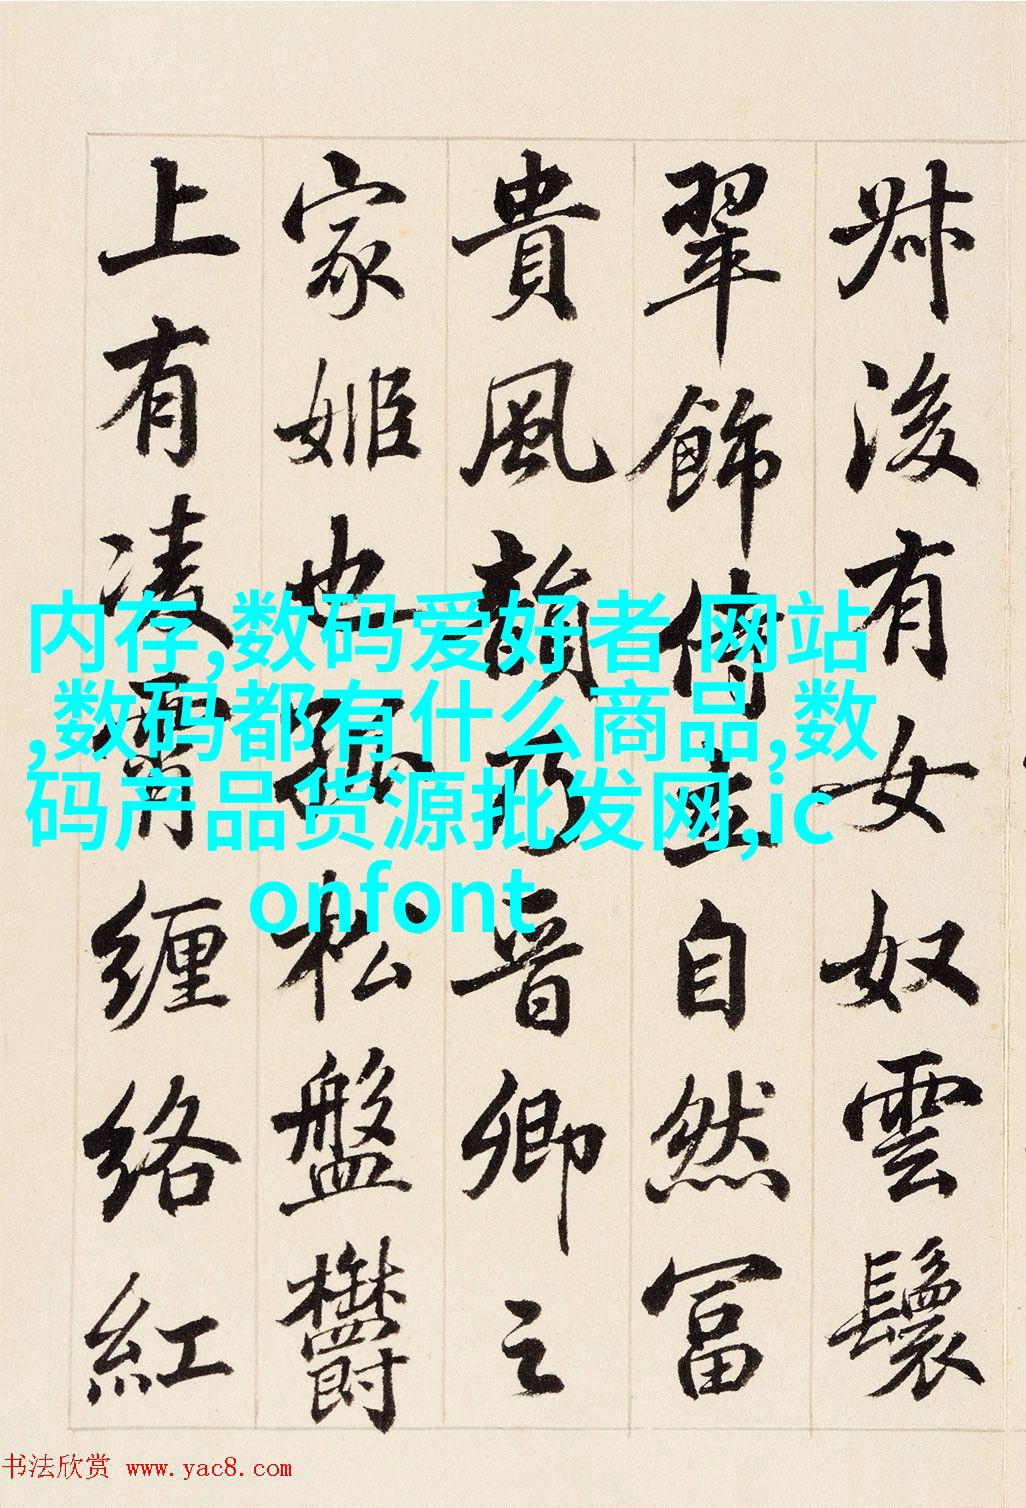 叔後有女奴雲鬟
翠飾侍立自然富
貴風韻乃晉卿之
家姬也孤松盤鬱
上有凌霄纏絡紅
内存,数码爱好者 网站
,数码都有什么商品,数
码产品货源批发网,ic
onfont
书法欣赏 www.yac8.com